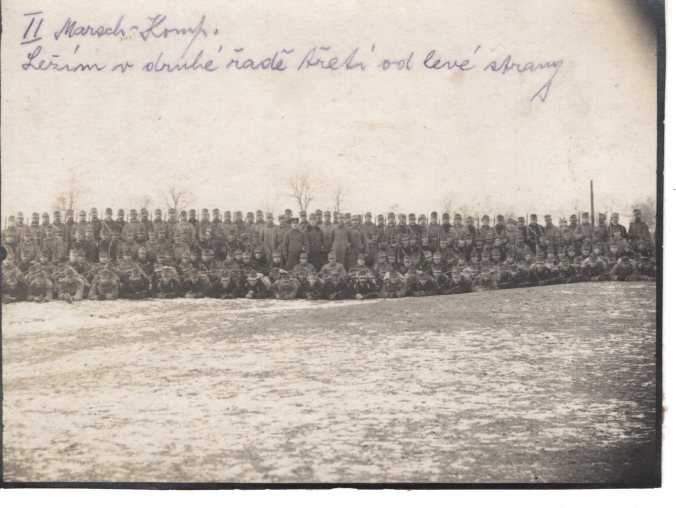 II Marsch-Komp.
Ležím v druhé řadě třetí od levé strany